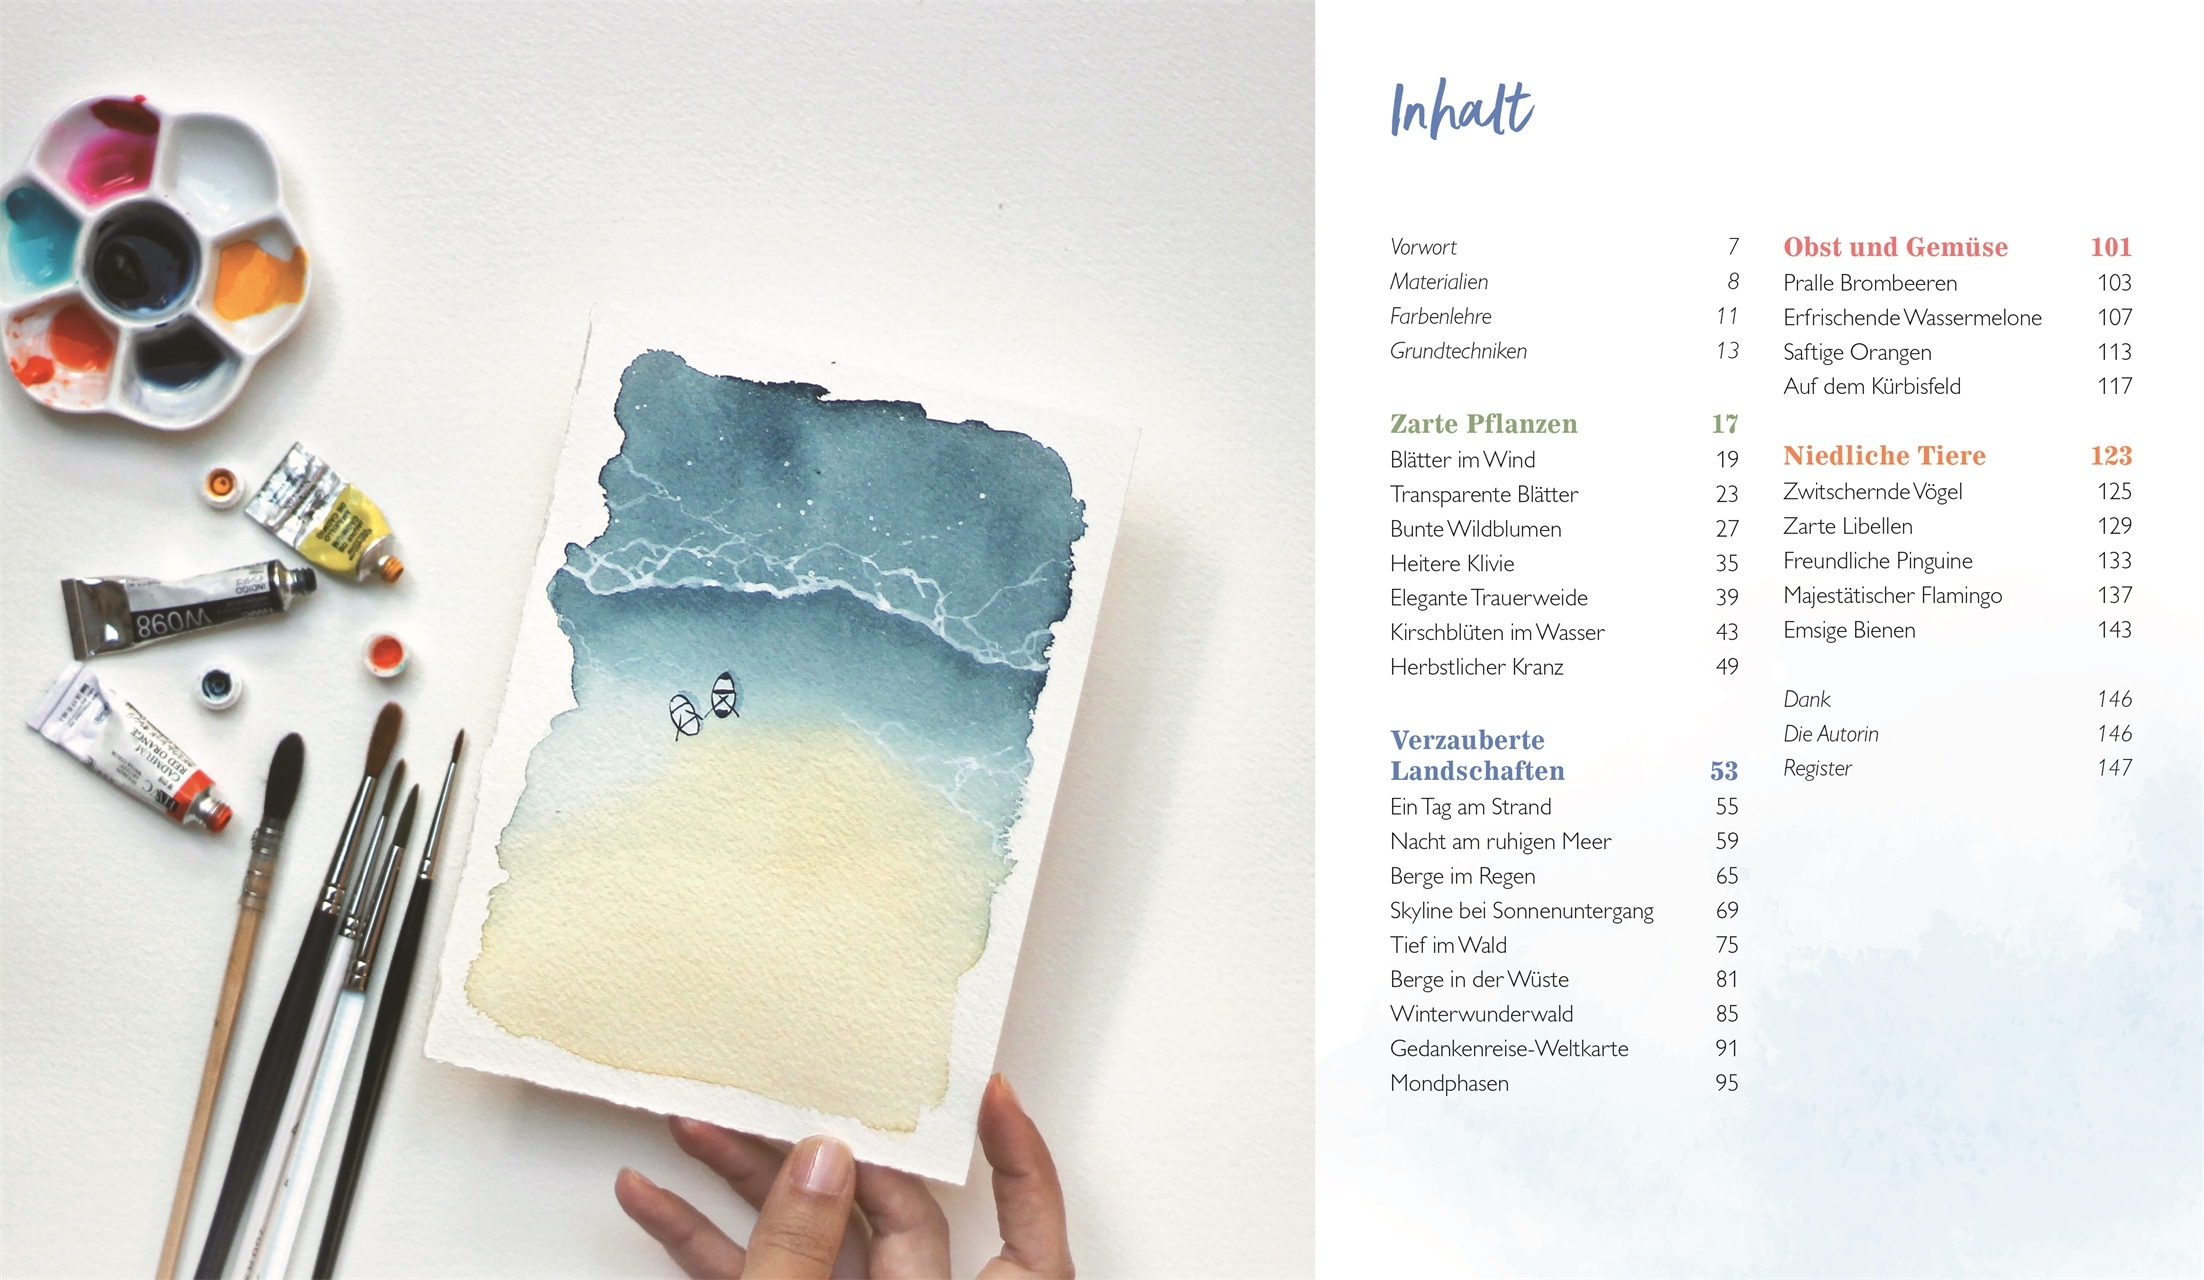 Inhalt
Vorwort 7
Materialien 8
Farbenlehre 11
Grundtechniken 13
Zarte Pflanzen 17
Blätter im Wind 19
Transparente Blätter 23
Bunte Wildblumen 27
Heitere Klivie 35
Elegante Trauerweide 39
Kirschblüten im Wasser 43
Herbstlicher Kranz 49
Verzauberte
Landschaften 53
Ein Tag am Strand 55
Nacht am ruhigen Meer 59
Berge im Regen 65
Skyline bei Sonnenuntergang 69
Tief im Wald 75
Berge in der Wüste 81
Winterwunderwald 85
Gedankenreise-Weltkarte 91
Mondphasen 95
Obst und Gemüse 101
Pralle Brombeeren 103
Erfrischende Wassermelone 107
Saftige Orangen 113
Auf dem Kürbisfeld 117
Niedliche Tiere 123
Zwitschernde Vögel 125
Zarte Libellen 129
Freundliche Pinguine 133
Majestätischer Flamingo 137
Emsige Bienen 143
Dank 146
Die Autorin 146
Register 147
INDIGO
W098
CADMIUM
RED ORANGE
HWC